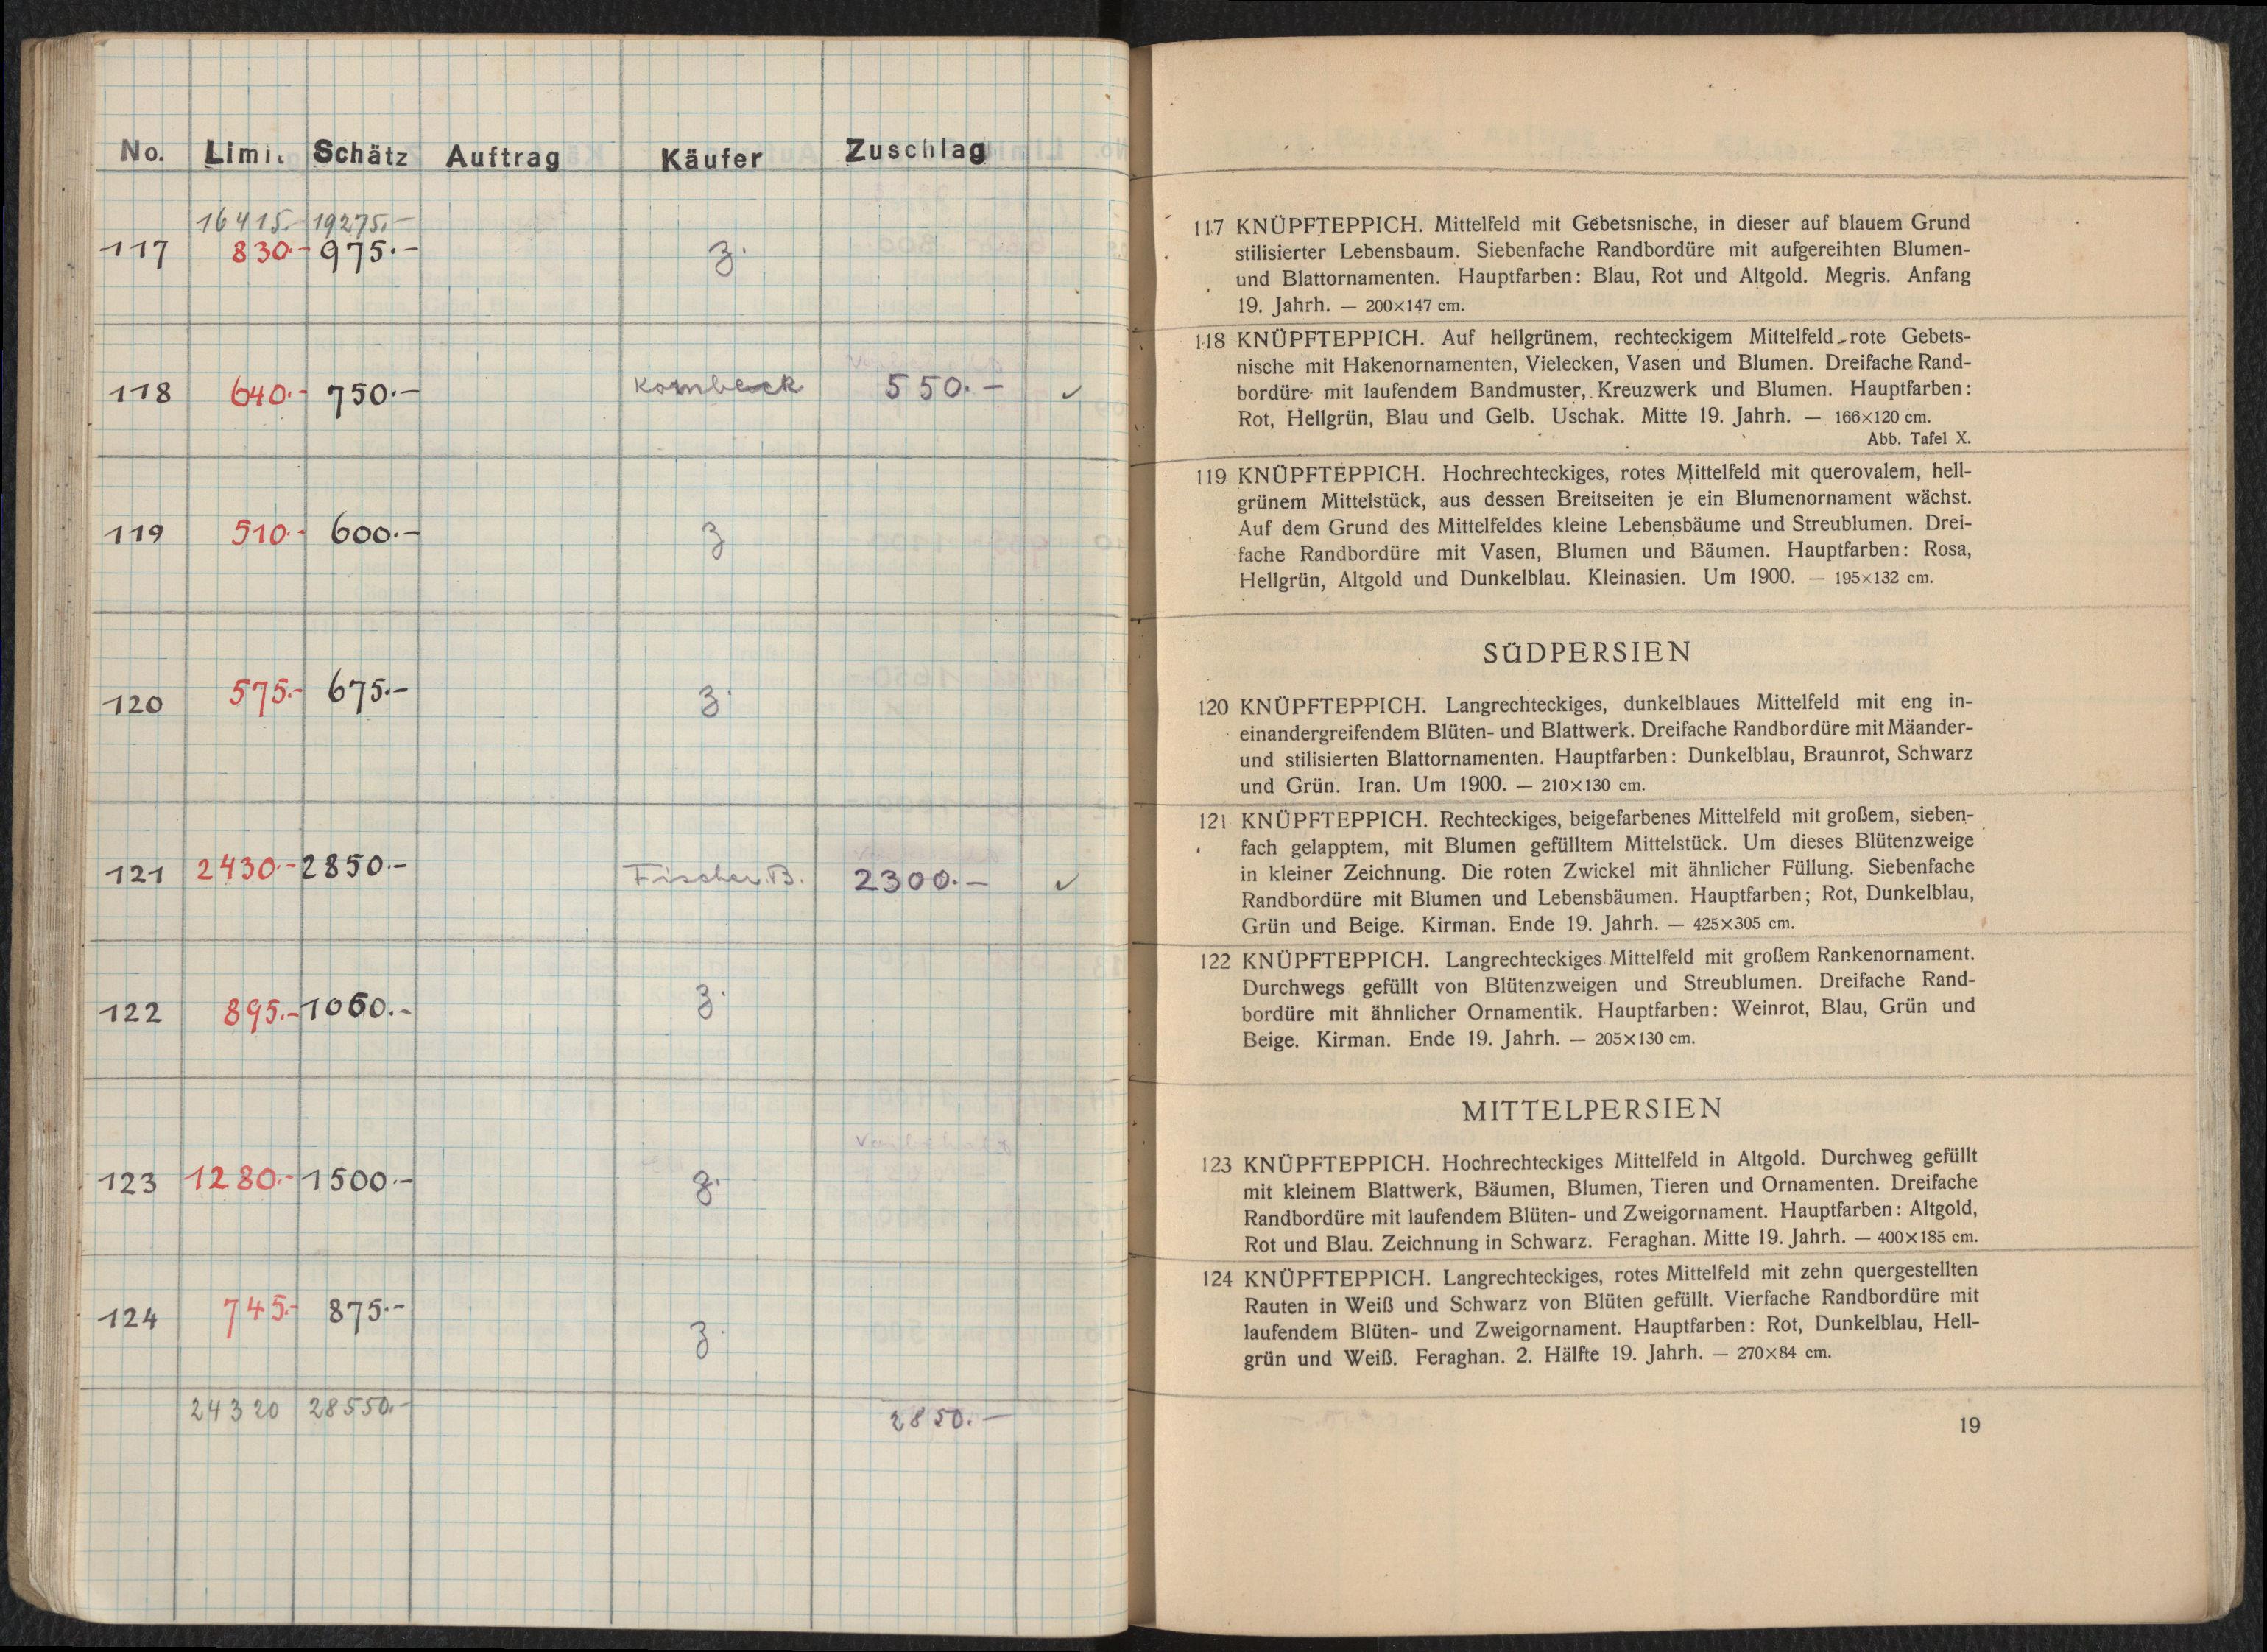 No. Limit Schätz Auftrag Käufer Zuschlag
16415.- 19275.-
117 830.- 975.- z.
118 640.- 750.- Kornbeck 550.- ✓
119 510.- 600.- z
120 575.- 675.- z.
121 2430.- 2850.- Fischer B. 2300.- ✓
122 895.- 1050.- z.
123 1280.- 1500.- z.
124 745.- 875.- z.
24320 28550.- 2850.-
117 KNÜPFTEPPICH. Mittelfeld mit Gebetsnische, in dieser auf blauem Grund
stilisierter Lebensbaum. Siebenfache Randbordüre mit aufgereihten Blumen-
und Blattornamenten. Hauptfarben: Blau, Rot und Altgold. Megris. Anfang
19. Jahrh. — 200×147 cm.
118 KNÜPFTEPPICH. Auf hellgrünem, rechteckigem Mittelfeld rote Gebets-
nische mit Hakenornamenten, Vielecken, Vasen und Blumen. Dreifache Rand-
bordüre mit laufendem Bandmuster, Kreuzwerk und Blumen. Hauptfarben:
Rot, Hellgrün, Blau und Gelb. Uschak. Mitte 19. Jahrh. — 166×120 cm.
Abb. Tafel X.
119 KNÜPFTEPPICH. Hochrechteckiges, rotes Mittelfeld mit querovalem, hell-
grünem Mittelstück, aus dessen Breitseiten je ein Blumenornament wächst.
Auf dem Grund des Mittelfeldes kleine Lebensbäume und Streublumen. Drei-
fache Randbordüre mit Vasen, Blumen und Bäumen. Hauptfarben: Rosa,
Hellgrün, Altgold und Dunkelblau. Kleinasien. Um 1900. — 195×132 cm.
SÜDPERSIEN
120 KNÜPFTEPPICH. Langrechteckiges, dunkelblaues Mittelfeld mit eng in-
einandergreifendem Blüten- und Blattwerk. Dreifache Randbordüre mit Mäander-
und stilisierten Blattornamenten. Hauptfarben: Dunkelblau, Braunrot, Schwarz
und Grün. Iran. Um 1900. — 210×130 cm.
121 KNÜPFTEPPICH. Rechteckiges, beigefarbenes Mittelfeld mit großem, sieben-
fach gelapptem, mit Blumen gefülltem Mittelstück. Um dieses Blütenzweige
in kleiner Zeichnung. Die roten Zwickel mit ähnlicher Füllung. Siebenfache
Randbordüre mit Blumen und Lebensbäumen. Hauptfarben; Rot, Dunkelblau,
Grün und Beige. Kirman. Ende 19. Jahrh. — 425×305 cm.
122 KNÜPFTEPPICH. Langrechteckiges Mittelfeld mit großem Rankenornament.
Durchwegs gefüllt von Blütenzweigen und Streublumen. Dreifache Rand-
bordüre mit ähnlicher Ornamentik. Hauptfarben: Weinrot, Blau, Grün und
Beige. Kirman. Ende 19. Jahrh. — 205×130 cm.
MITTELPERSIEN
123 KNÜPFTEPPICH. Hochrechteckiges Mittelfeld in Altgold. Durchweg gefüllt
mit kleinem Blattwerk, Bäumen, Blumen, Tieren und Ornamenten. Dreifache
Randbordüre mit laufendem Blüten- und Zweigornament. Hauptfarben: Altgold,
Rot und Blau. Zeichnung in Schwarz. Feraghan. Mitte 19. Jahrh. — 400×185 cm.
124 KNÜPFTEPPICH. Langrechteckiges, rotes Mittelfeld mit zehn quergestellten
Rauten in Weiß und Schwarz von Blüten gefüllt. Vierfache Randbordüre mit
laufendem Blüten- und Zweigornament. Hauptfarben: Rot, Dunkelblau, Hell-
grün und Weiß. Feraghan. 2. Hälfte 19. Jahrh. — 270×84 cm.
19